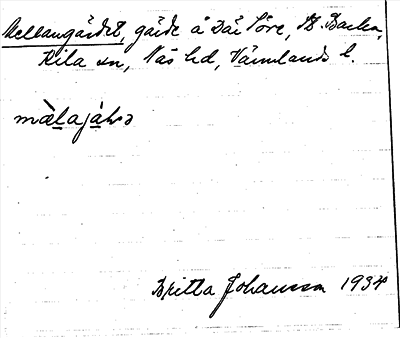 Mellangärdet, gärde å Där Söre, St. Backa,
Kila sn, Näs hd, Värmlands l.
mä̀laja̱ḷṣə
Britta Johansson 1934